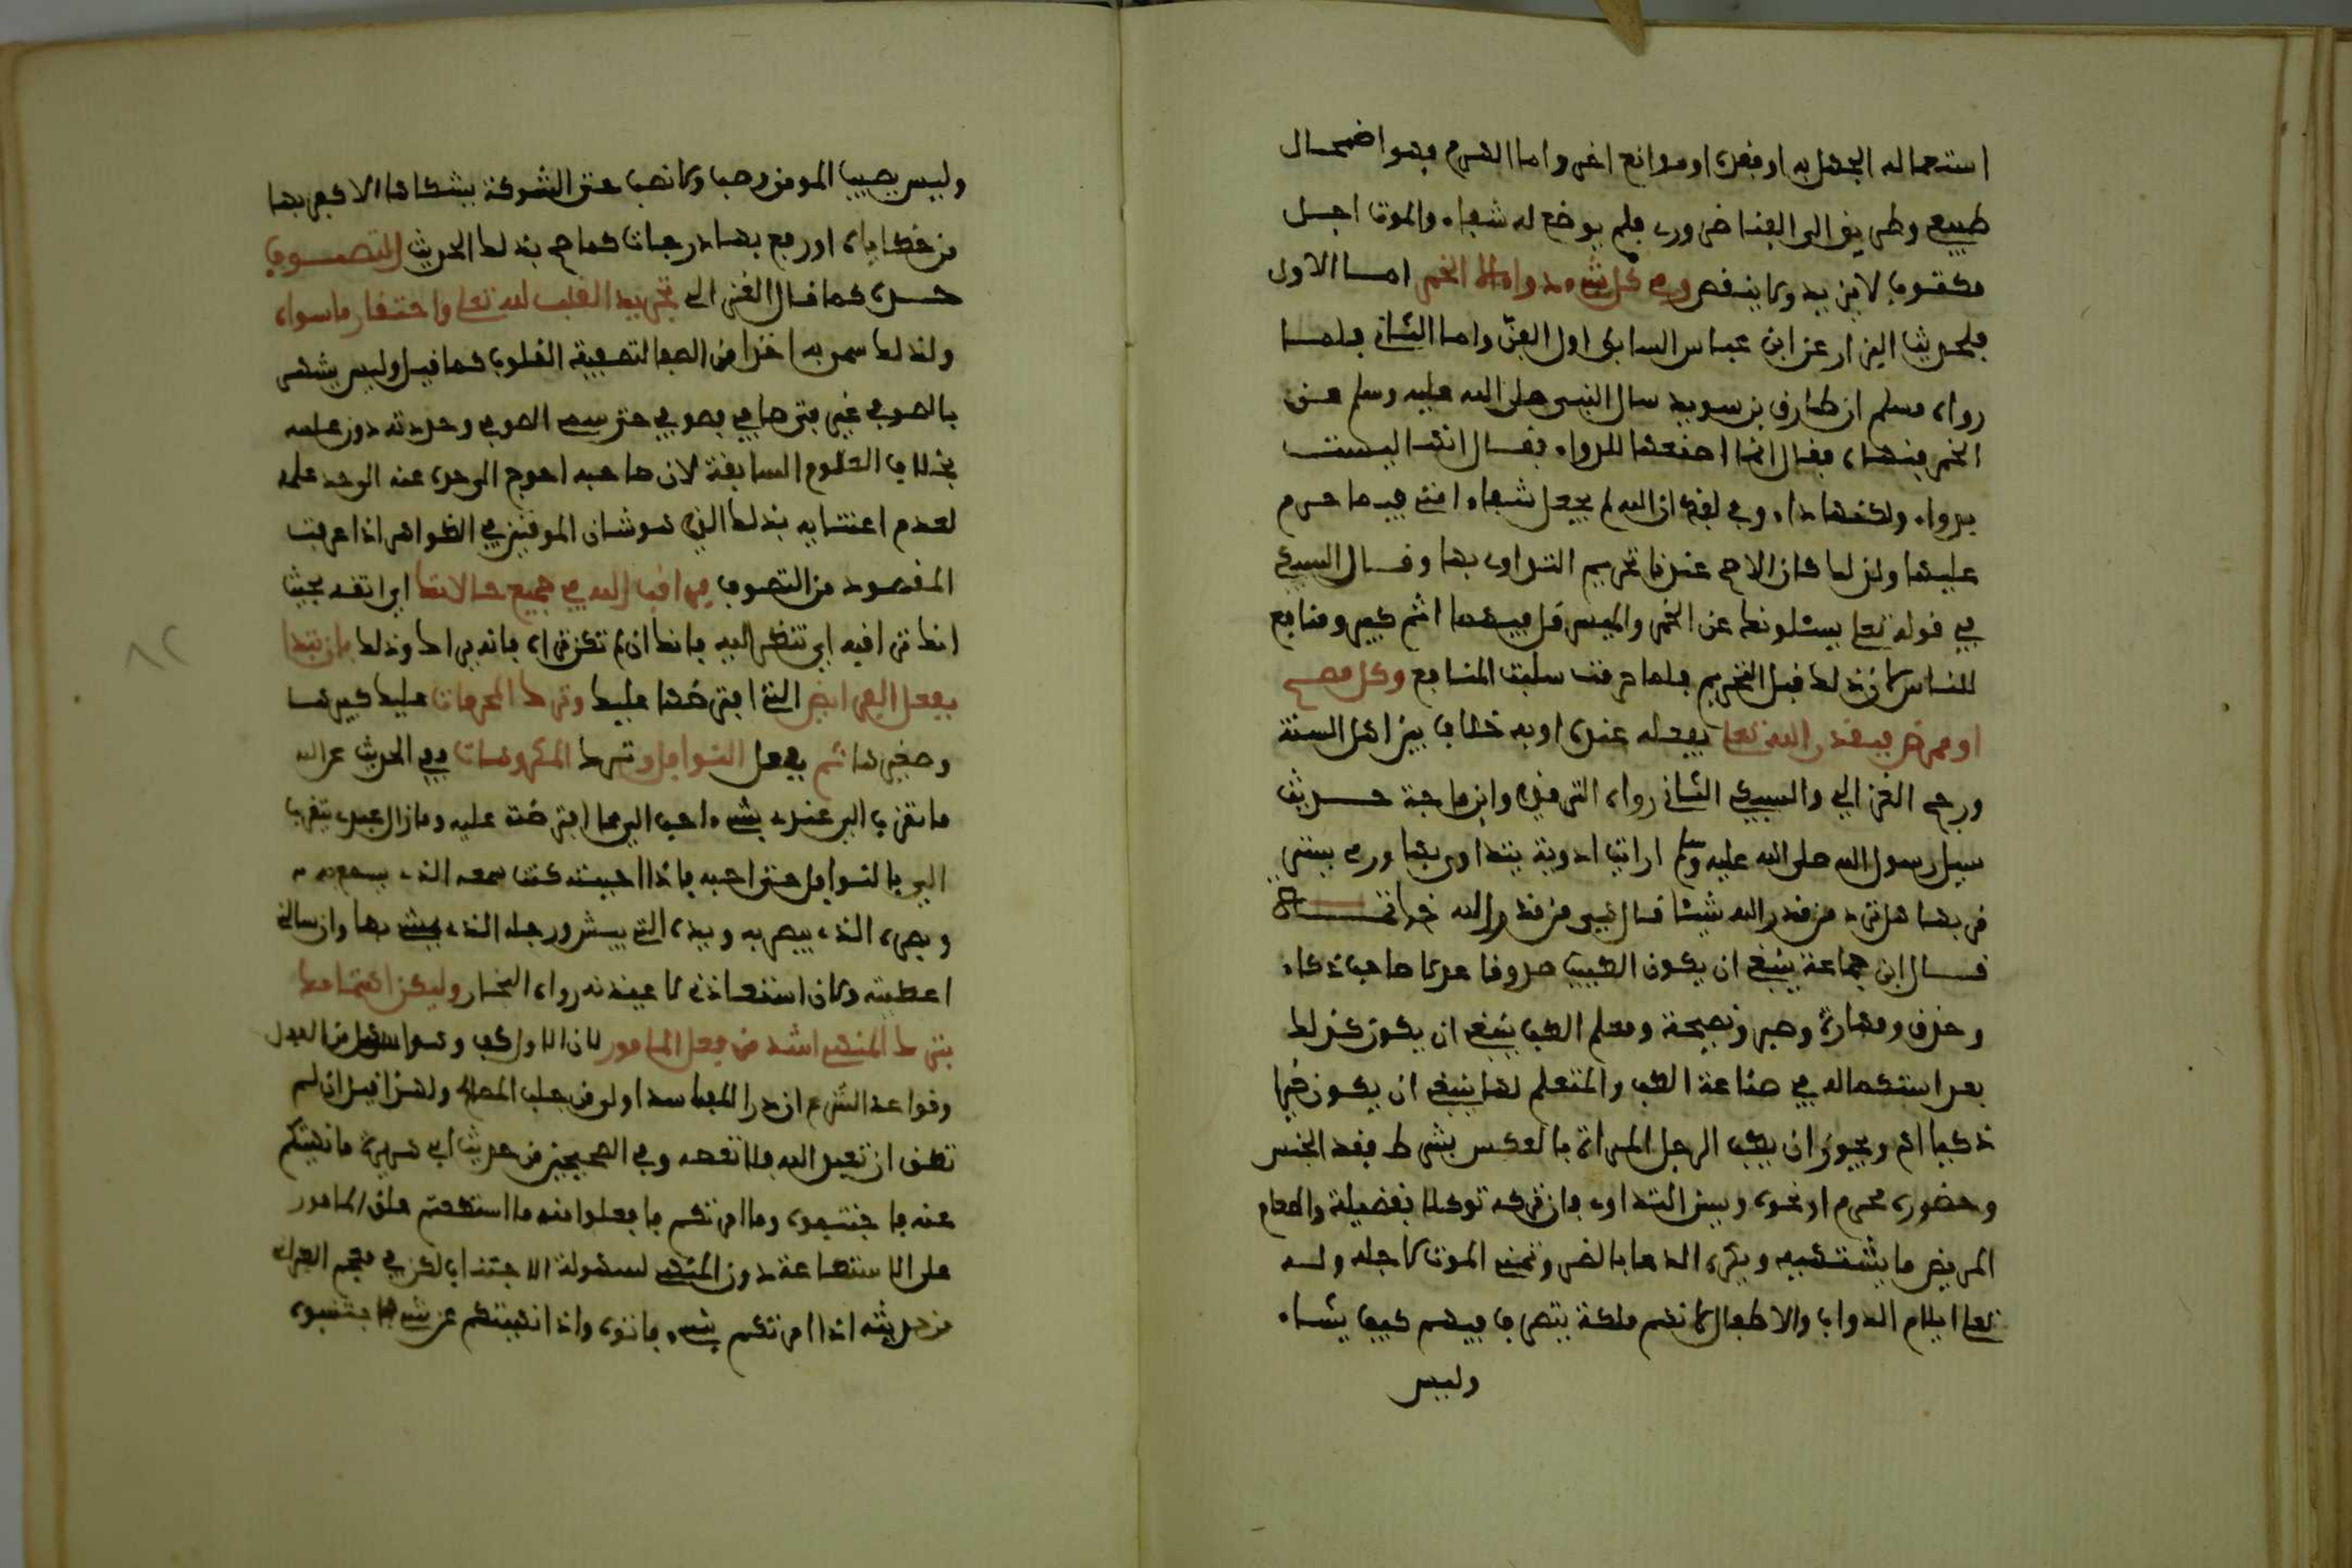 استعماله الجهل به او فقده او موانع اخر واما الهرم فهو اضمحلال
طبيعي وطريق الى الفنا ضروري فلم يوضع له شفاء والموت اجل
مكتوب لا يزيد ولا ينقص وفي كل شيء دواء الا الخمر اما الاول
فلحديث البزار عن ابن عباس السابق اول الفن واما الثاني فلما
رواه مسلم ان طارق بن سويد سال النبي صلى الله عليه وسلم عن
الخمر فنهاه فقال انما اصنعها للدواء فقال انها ليست
بدواء ولكنها داء وفي لفظ ان الله لم يجعل شفاء امتي فيما حرم
عليها ولذلك كان الاصح عندنا تحريم التداوي بها وقال السبكي
في قوله تعلى يسئلونك عن الخمر والميسر قل فيهما اثم كبير ومنافع
للناس كان ذلك قبل التحريم فلما حرمت سلبت المنافع وكل مصح
او ممرض فبقدر الله تعلى يفعله عنده او به خلاف بين اهل السنة
ورجح الغزالي والسبكي الثاني رواه الترمذي وابن ماجة حديث
سيل رسول الله صلى الله عليه وسلم ارايت ادوية يتداوى بها ورقى يسترقى
بها هل ترد من قدر الله شيئا قال هي من قدر الله خاتمة
قال ابن جماعة ينبغي ان يكون الطبيب صدوقا عدلا صاحب ذكاء
وحذق ومهارة وصبر ونصيحة ومعلم الطب ينبغي ان يكون كذلك
بعد استكماله في صناعة الطب والمتعلم لها ينبغي ان يكون خيرا
ذكيا اه ويجوز ان يطب الرجل المراة وبالعكس بشرط فقد الجنس
وحضور محرم او نحوه ويسن التداوي فان تركه توكلا ففضيلة واطعام
المريض ما يشتهيه ويكره الدعا بالضر وتمني الموت لاجله وله
تعلى ايلام الدواب والاطفال لانهم ملكه يتصرف فيهم كيف يشاء
وليس
وليس يصيب المومن وصب ولا نصب حتى الشوكة يشاكها الا كفر بها
من خطاياه او رفع بها درجات كما صح بذلك الحديث التصوف
حده كما قال الغزالي تجريد القلب لله تعلى واحتقار ما سواه
ولذلك سمي به اخذا من الصفا لتصفية القلوب كما قيل وليس يشهر
بالصوفي غير فتى صافى فصوفي حتى سمي الصوفي وحددته دون علمه
بخلاف العلوم السابقة لان صاحبه احوج الى حده عنه الى حد علمه
لعدم اعتنايه بذلك الذي هو شان الموقنين في الظواهر اذا عرفت
المقصود من التصوف فراقب الله في جميع حالاتك اي اتقه بحيث
انك تراه اي تنظر اليه فانك ان لم تكن تراه فانه يراك وذلك بان تبدا
بفعل الفرايض التي افترضها عليك وترك المحرمات عليك كبيرها
وصغيرها ثم بفعل النوافل وترك المكروهات ففي الحديث عن الله
ما تقرب الي عبدي بشيء احب الي مما افترضته عليه وما زال عبدي يتقرب
الي بالنوافل حتى احبه فاذا احببته كنت سمعه الذي يسمع به
وبصره الذي يبصر به ويده التي يبطش ورجله الذي يمشي بها وان سالني
اعطيته ولان استعاذني لاعيذنه رواه البخاري وليكن اهتمامك
بترك المنهي اشد من فعل المامور لان الاول كف وهو اسهل من الفعل
وقواعد الشرع ان درا المفاسد اولى من جلب المصالح ولهذا قيل ان لم
تطق ان تعبد الله فلا تعصه وفي الصحيحين من حديث ابي هريرة ما نهيتكم
عنه فاجتنبوه وما امرتكم فافعلوا منه ما استطعتم علق المامور
على الاستطاعة دون المنهي لسهولة الاجتناب لكن في معجم الطبراني
من حديثه اذا امرتكم بشيء فاتوه واذا نهيتكم عن شيء فاجتنبوه
٨٢